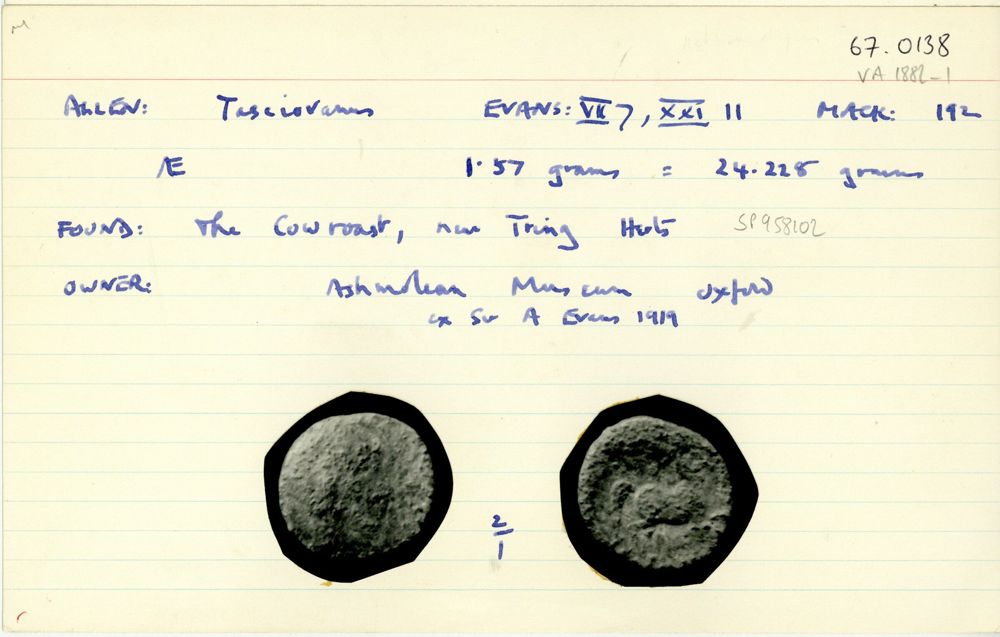 67.0138
VA 1882-1
ALLEN: Tasciovanus EVANS: VII 7, XXI 11 MACK: 192
Æ 1.57 grams = 24.228 grains
FOUND: The Cow roast, near Tring Herts SP958102
OWNER: Ashmolean Museum Oxford
ex Sir A Evans 1919
2
1